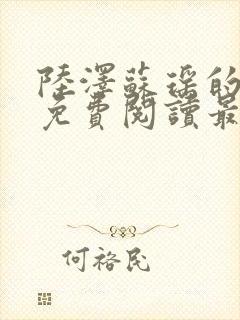 陸澤蘇瑤的
免費閱讀最
何裕民